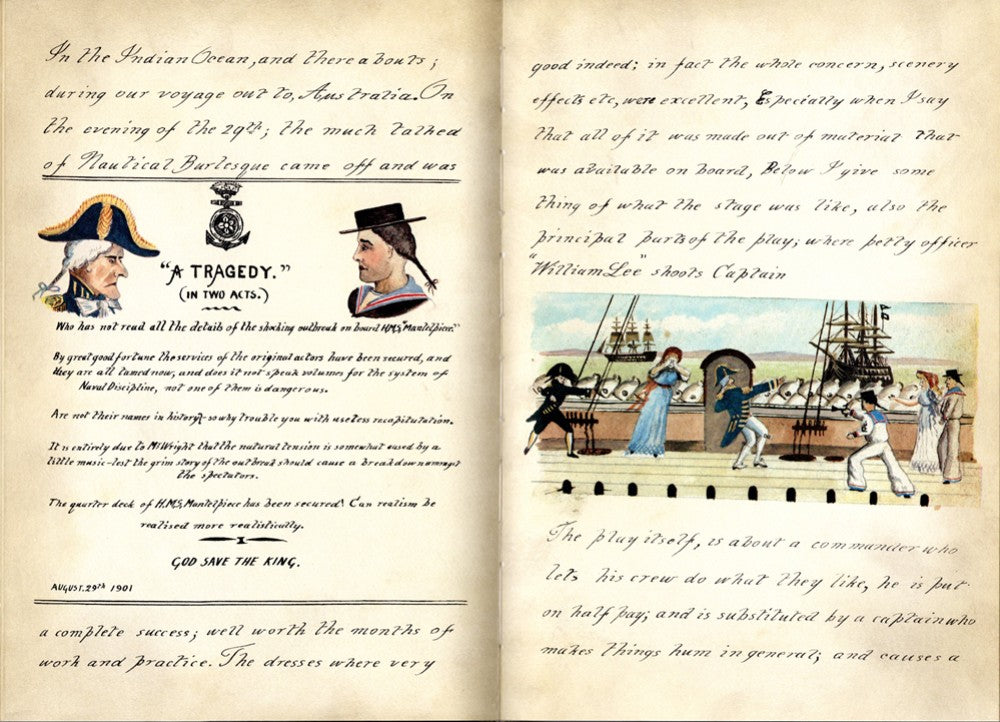 In the Indian Ocean, and thereabouts;
during our voyage out to, Australia. On
the evening of the 29th; the much talked
of Nautical Burlesque came off and was
"A TRAGEDY."
(IN TWO ACTS.)
Who has not read all the details of the shocking outbreak on board H.M.S "Mantelpiece."
By great good fortune the services of the original actors have been secured, and
they are all tamed now, and does it not speak volumes for the system of
Naval Discipline, not one of them is dangerous.
Are not their names in history - so why trouble you with useless recapitulation.
It is entirely due to Mr Wright that the natural tension is somewhat eased by a
little music - lest the grim story of the outbreak should cause a breakdown amongst
the spectators.
The quarter deck of H.M.S, Mantelpiece has been secured! Can realism be
realised more realistically.
GOD SAVE THE KING.
AUGUST. 29th 1901
a complete success; well worth the months of
work and practice. The dresses where very
good indeed; in fact the whole concern, scenery
effects etc, were excellent, Especially when I say
that all of it was made out of material that
was available on board, Below I give some
thing of what the stage was like, also the
principal parts of the play; where petty officer
"William Lee" shoots Captain
The play itself, is about a commander who
lets his crew do what they like, he is put
on half pay; and is substituted by a captain who
makes things hum in general; and causes a